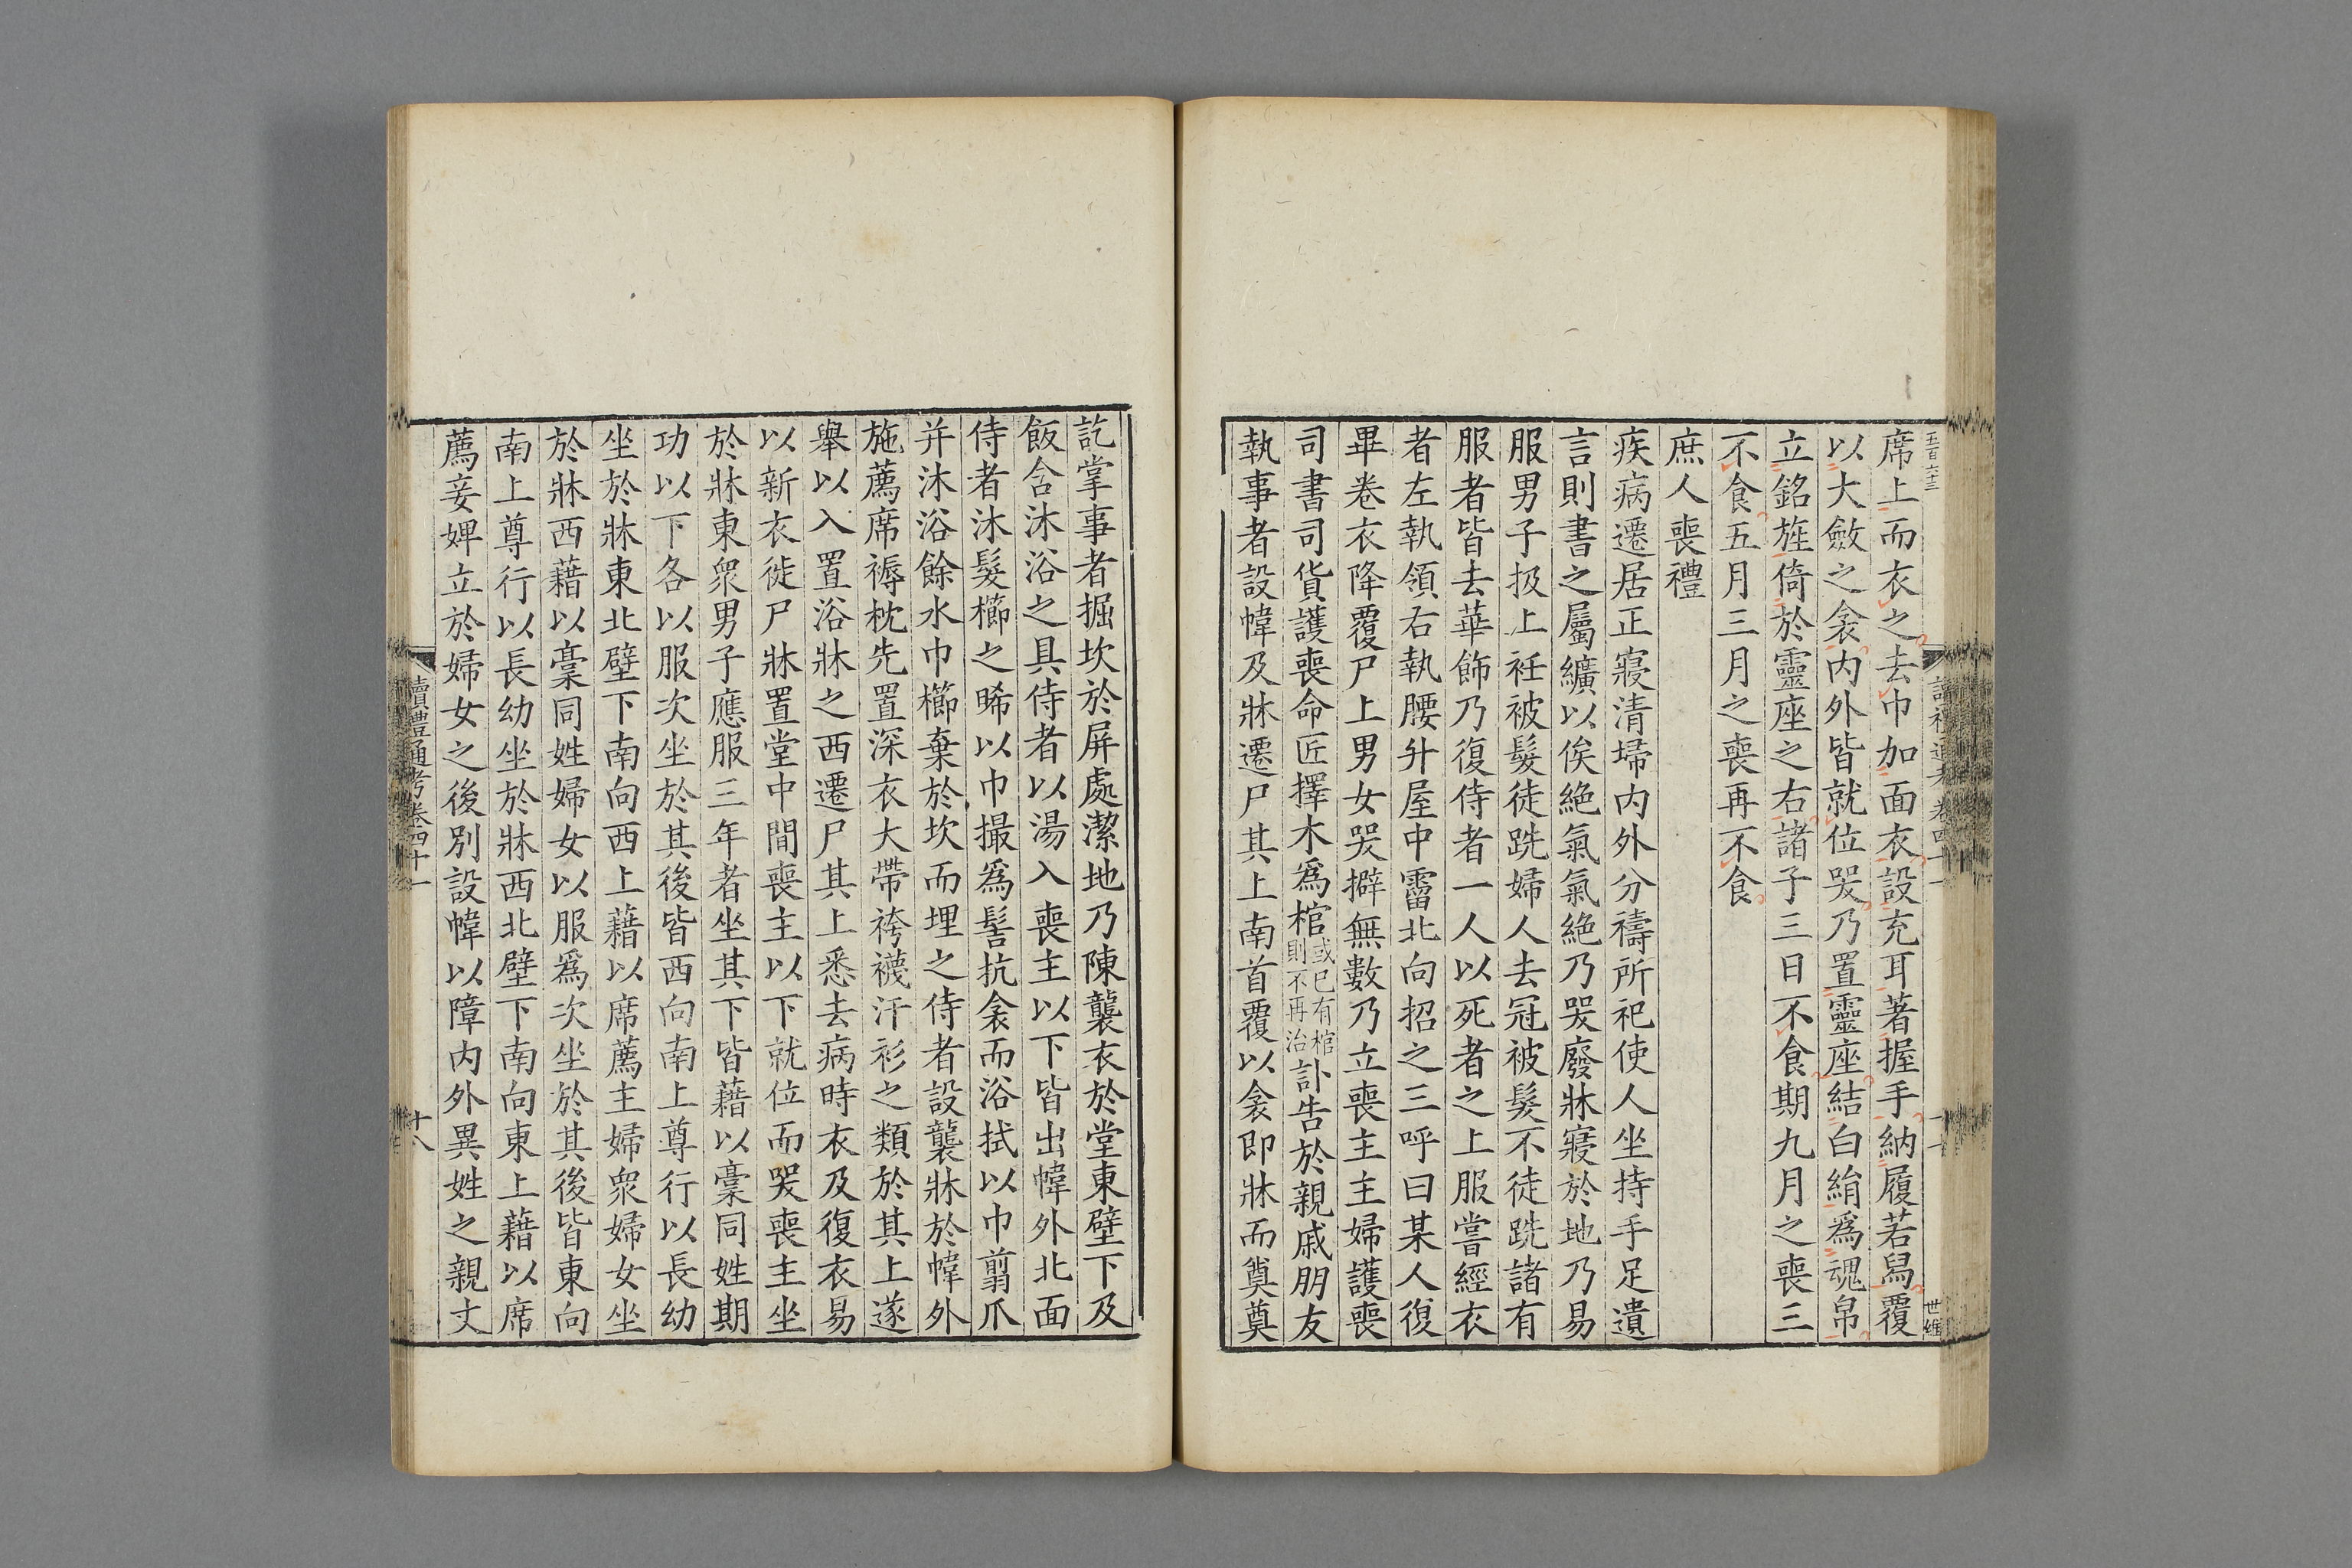 五百六十三
席上而衣之去巾加面衣設充耳著握手納履若舄覆
以大斂之衾内外皆就位哭乃置靈座結白絹爲魂帛
立銘旌倚於靈座之右諸子三日不食期九月之喪三
不食五月三月之喪再不食
庶人喪禮
疾病遷居正寢清埽内外分禱所祀使人坐持手足遺
言則書之屬纊以俟絶氣氣絶乃哭廢牀寢於地乃易
服男子扱上衽被髮徒跣婦人去冠被髮不徒跣諸有
服者皆去華飾乃復侍者一人以死者之上服嘗經衣
者左執領右執腰升屋中霤北向招之三呼曰某人復
畢卷衣降覆尸上男女哭擗無數乃立喪主主婦護喪
司書司貨護喪命匠擇木爲棺或已有棺則不再治訃告於親戚朋友
執事者設幃及牀遷尸其上南首覆以衾即牀而奠奠
訖掌事者掘坎於屏處潔地乃陳襲衣於堂東壁下及
飯含沐浴之具侍者以湯入喪主以下皆出幃外北面
侍者沐髮櫛之晞以巾撮爲髻抗衾而浴拭以巾翦爪
并沐浴餘水巾櫛棄於坎而埋之侍者設襲牀於幃外
施薦席褥枕先置深衣大帶袴襪汗衫之類於其上遂
舉以入置浴牀之西遷尸其上悉去病時衣及復衣易
以新衣徙尸牀置堂中間喪主以下就位而哭喪主坐
於牀東衆男子應服三年者坐其下皆藉以槀同姓期
功以下各以服次坐於其後皆西向南上尊行以長幼
坐於牀東北壁下南向西上藉以席薦主婦衆婦女坐
於牀西藉以槀同姓婦女以服爲次坐於其後皆東向
南上尊行以長幼坐於牀西北壁下南向東上藉以席
薦妾婢立於婦女之後別設幃以障内外異姓之親丈
讀禮通考卷四十一
十八